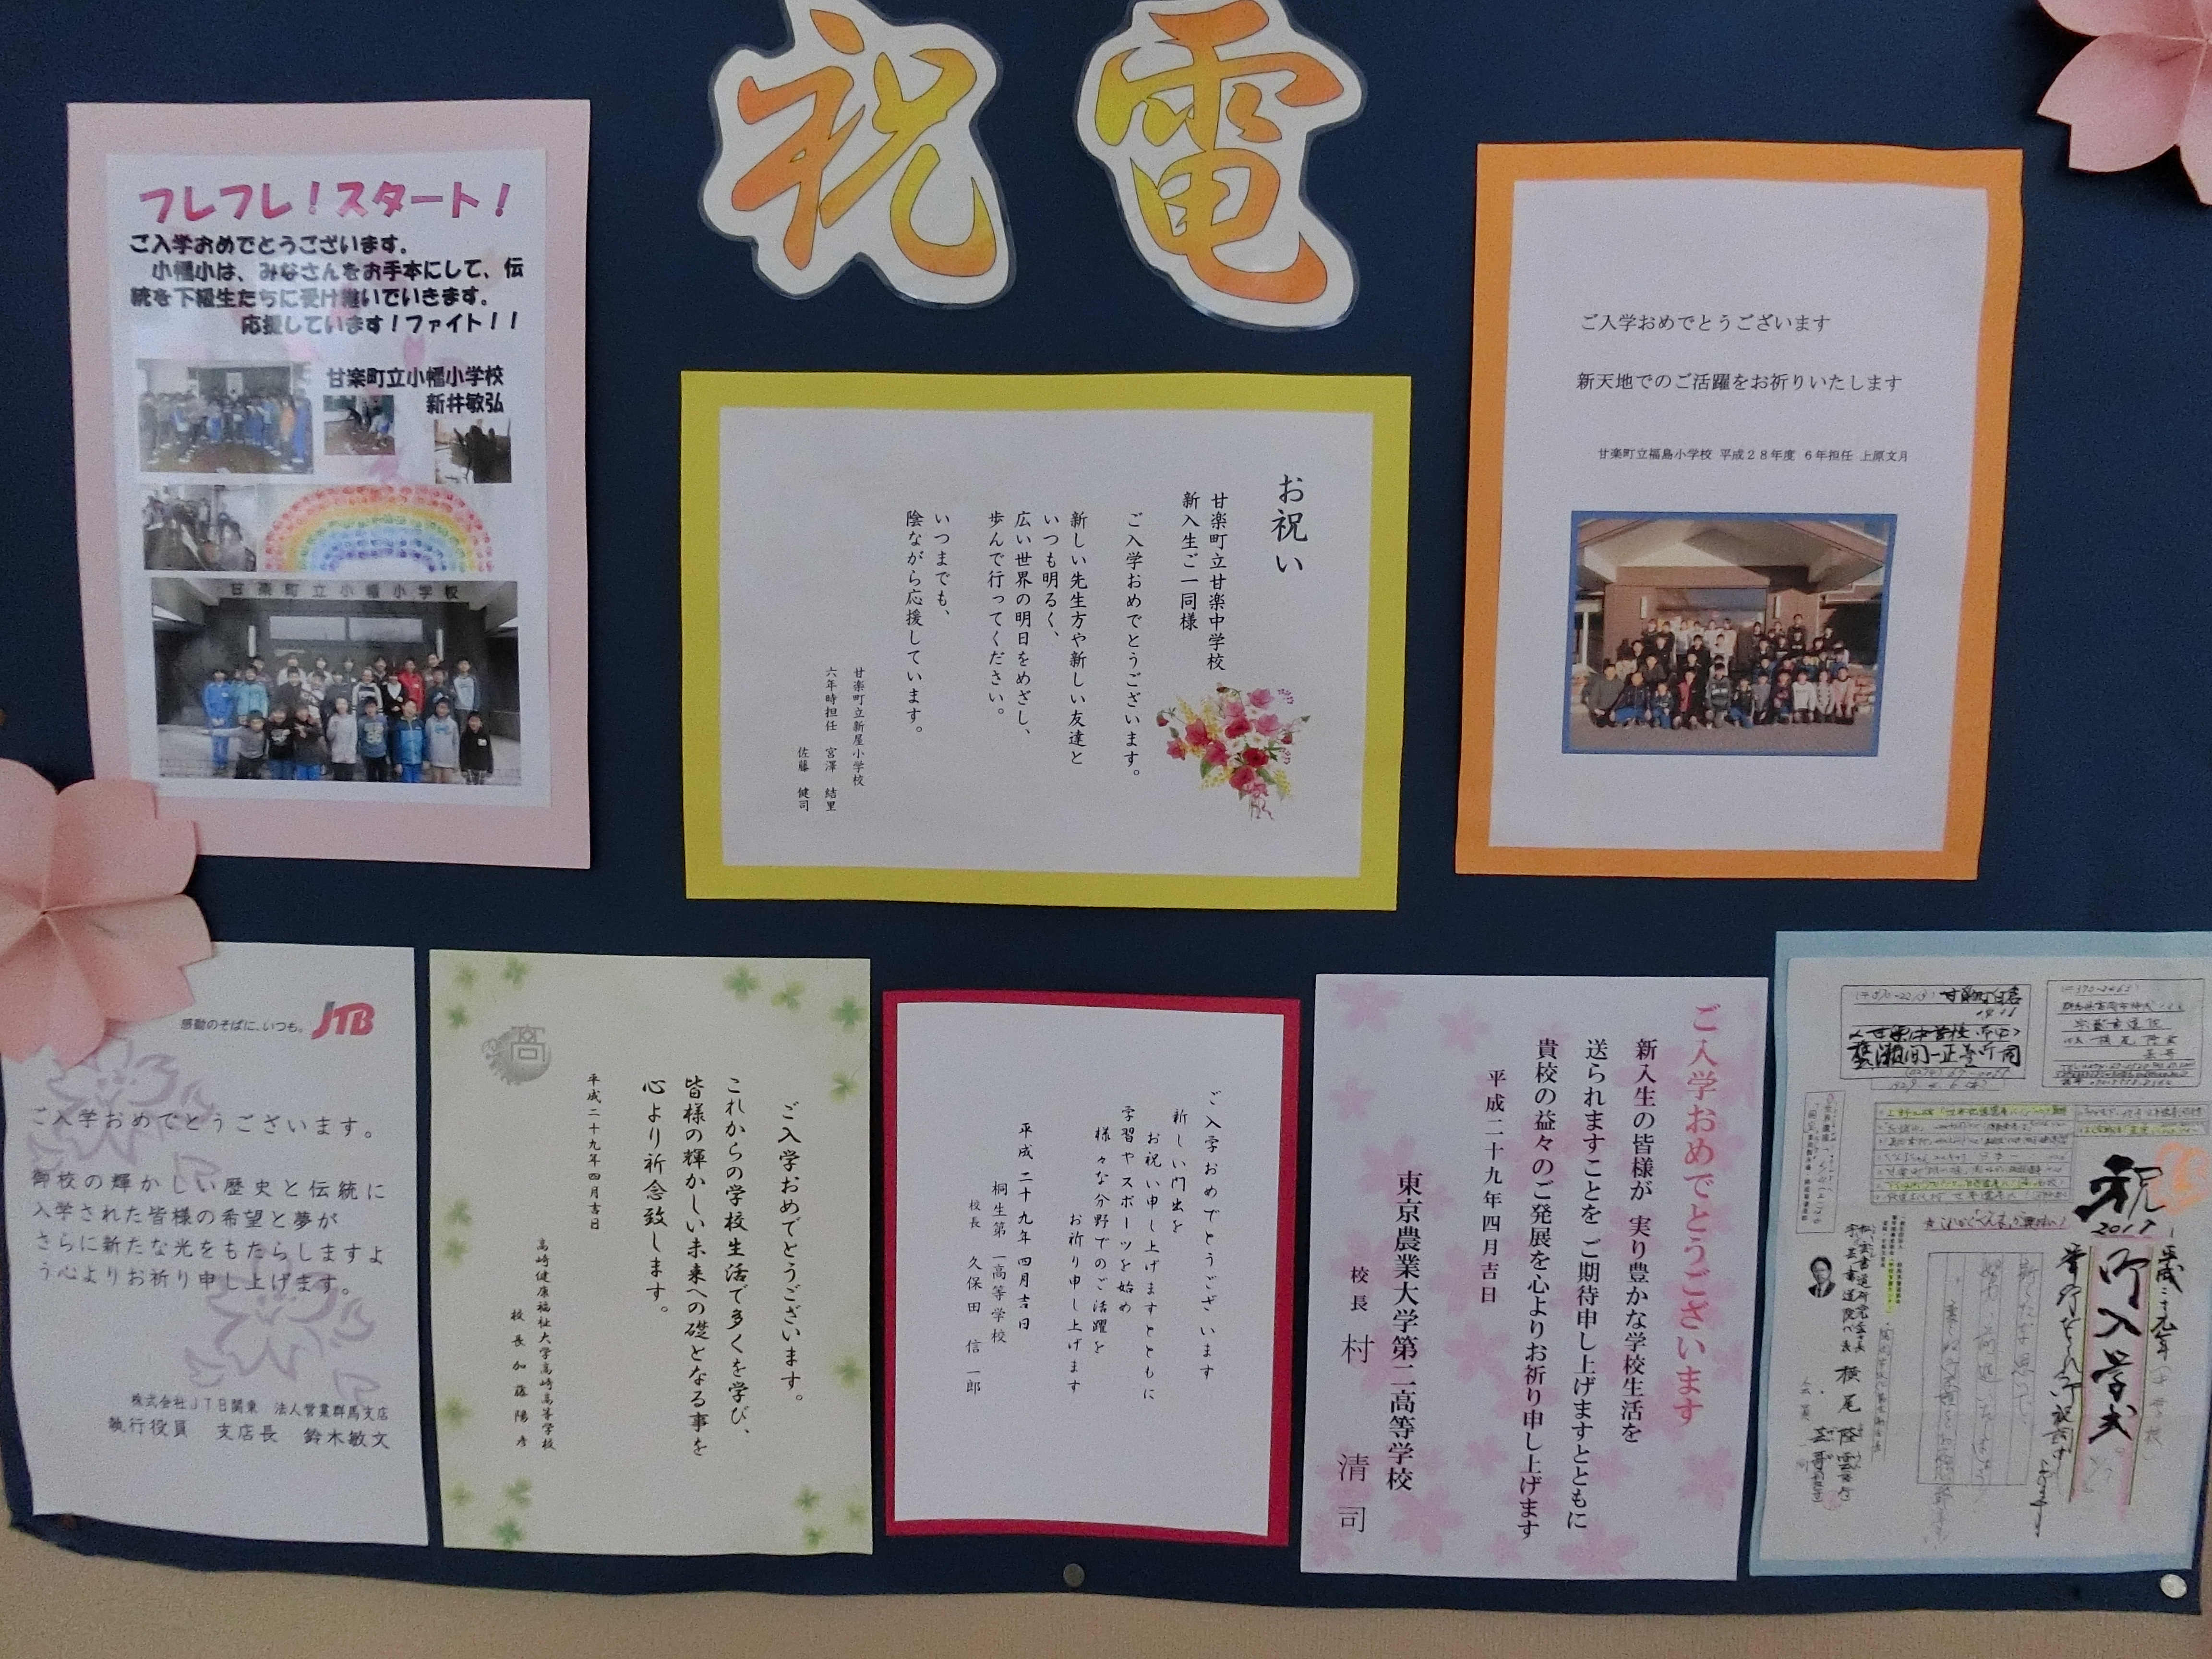 祝電
フレフレ！スタート！
ご入学おめでとうございます。
小幡小は、みなさんをお手本にして、伝
統を下級生たちに受け継いでいきます。
応援しています！ファイト！！
甘楽町立小幡小学校
新井敏弘
甘楽町立小幡小学校
お祝い
甘楽町立甘楽中学校
新入生ご一同様
ご入学おめでとうございます。
新しい先生方や新しい友達と
いつも明るく、
広い世界の明日をめざし、
歩んで行ってください。
いつまでも、
陰ながら応援しています。
甘楽町立新屋小学校
六年時担任 宮澤 結里
佐藤 健司
ご入学おめでとうございます
新天地でのご活躍をお祈りいたします
甘楽町立福島小学校 平成２８年度 ６年担任 上原文月
感動のそばに、いつも。 JTB
ご入学おめでとうございます。
御校の輝かしい歴史と伝統に
入学された皆様の希望と夢が
さらに新たな光をもたらしますよ
う心よりお祈り申し上げます。
株式会社ＪＴＢ関東 法人営業群馬支店
執行役員 支店長 鈴木敏文
高
ご入学おめでとうございます。
これからの学校生活で多くを学び、
皆様の輝かしい未来への礎となる事を
心より祈念致します。
平成二十九年四月吉日
高崎健康福祉大学高崎高等学校
校長 加藤陽彦
ご入学おめでとうございます
新しい門出を
お祝い申し上げますとともに
学習やスポーツを始め
様々な分野でのご活躍を
お祈り申し上げます
平成二十九年四月吉日
桐生第一高等学校
校長 久保田信一郎
ご入学おめでとうございます
新入生の皆様が 実り豊かな学校生活を
送られますことを ご期待申し上げますとともに
貴校の益々のご発展を心よりお祈り申し上げます
平成二十九年四月吉日
東京農業大学第二高等学校
校長 村 清司
祝
2017
平成二十九年
御入学式
横尾